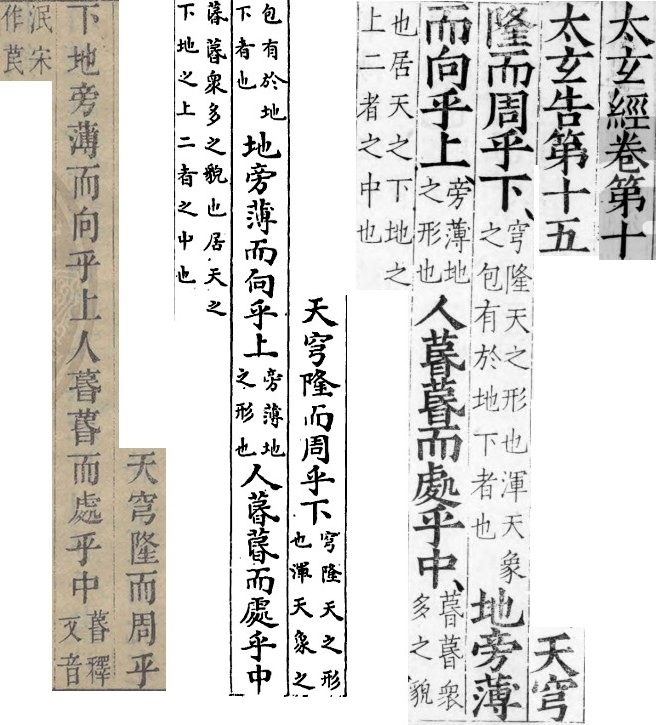 太玄經卷第十
太玄告第十五
天穹
隆而周乎下、穹隆天之形也渾天象之包有於地下者也地旁薄
而向乎上、旁薄地之形也人而處乎中、衆多之貌
也居天之下地之上二者之中也
天穹隆而周乎下穹隆天之形也渾天象之
包有於地下者也地旁薄而向乎上旁薄地之形也人而處乎中
衆多之貌也居天之下地之上二者之中也
天穹隆而周乎
下地旁薄而向乎上人而處乎中釋文音
泯宋作苠